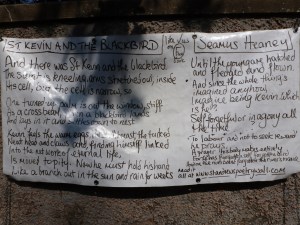 ST KEVIN AND THE BLACKBIRD
And there was St Kevin and the blackbird.
The saint is kneeling, arms stretched out, inside
His cell, but the cell is narrow, so
One turned up palm is out the window, stiff
As a crossbeam, when a blackbird lands
And lays in it and settles down to nest.
Kevin feels the warm eggs, the small breast, the tucked
Neat head and claws and, finding himself linked
Into the network of eternal life,
Is moved to pity: Now he must hold his hand
Like a branch out in the sun and rain for weeks
Seamus Heaney
Until the young are hatched
and fledged and flown.
And since the whole thing's
imagined anyhow,
Imagine being Kevin. Which
is he?
Self-forgetful or in agony all
the time
'To labour and not to seek reward'
he prays
A prayer his body makes entirely
For he has forgotten self, forgotten bird